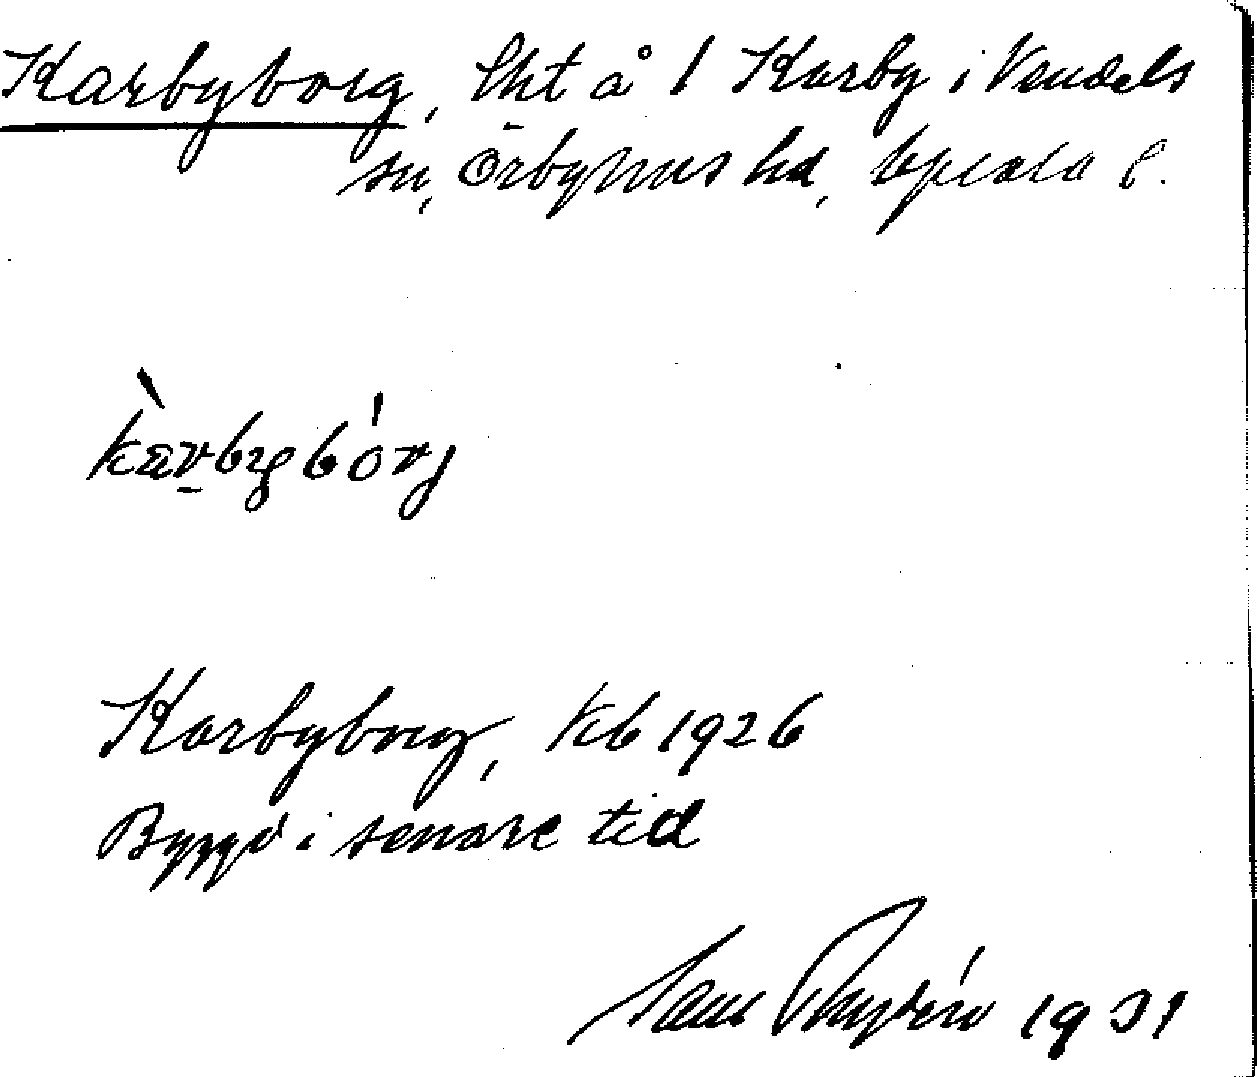 Karbyborg, lht å 1 Karby i Vendels
sn, Örbyhus hd, Uppsala l.
Karbyborg, kb 1926
Byggd i senare tid
1931